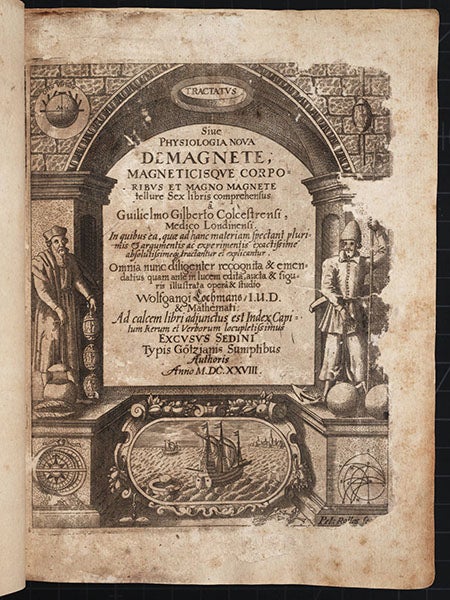 TRACTATUS
Siue
PHYSIOLOGIA NOVA
DE MAGNETE,
MAGNETICISQVE CORPO-
RIBVS ET MAGNO MAGNETE
tellure Sex libris comprehensus
à
Guilielmo Gilberto Colcestrensi,
Medico Londinensi.
In quibus ea, quæ ad hanc materiam spectant pluri-
mis & argumentis ac experimentis exactissime
absolutissimeq; tractantur et explicantur.
Omnia nunc diligenter recognita & emen-
datius quam ante in lucem edita, aucta & figu-
ris illustrata operâ & studio
Wolfgangi Lochmans / I.U.D.
& Mathemati:
Ad calcem libri adjunctus est Index Capi-
tum Rerum et Verborum locupletissimus
EXCVSVS SEDINI
Typis Götzianis Sumptibus
Authoris
Anno M.DC.XXVIII.